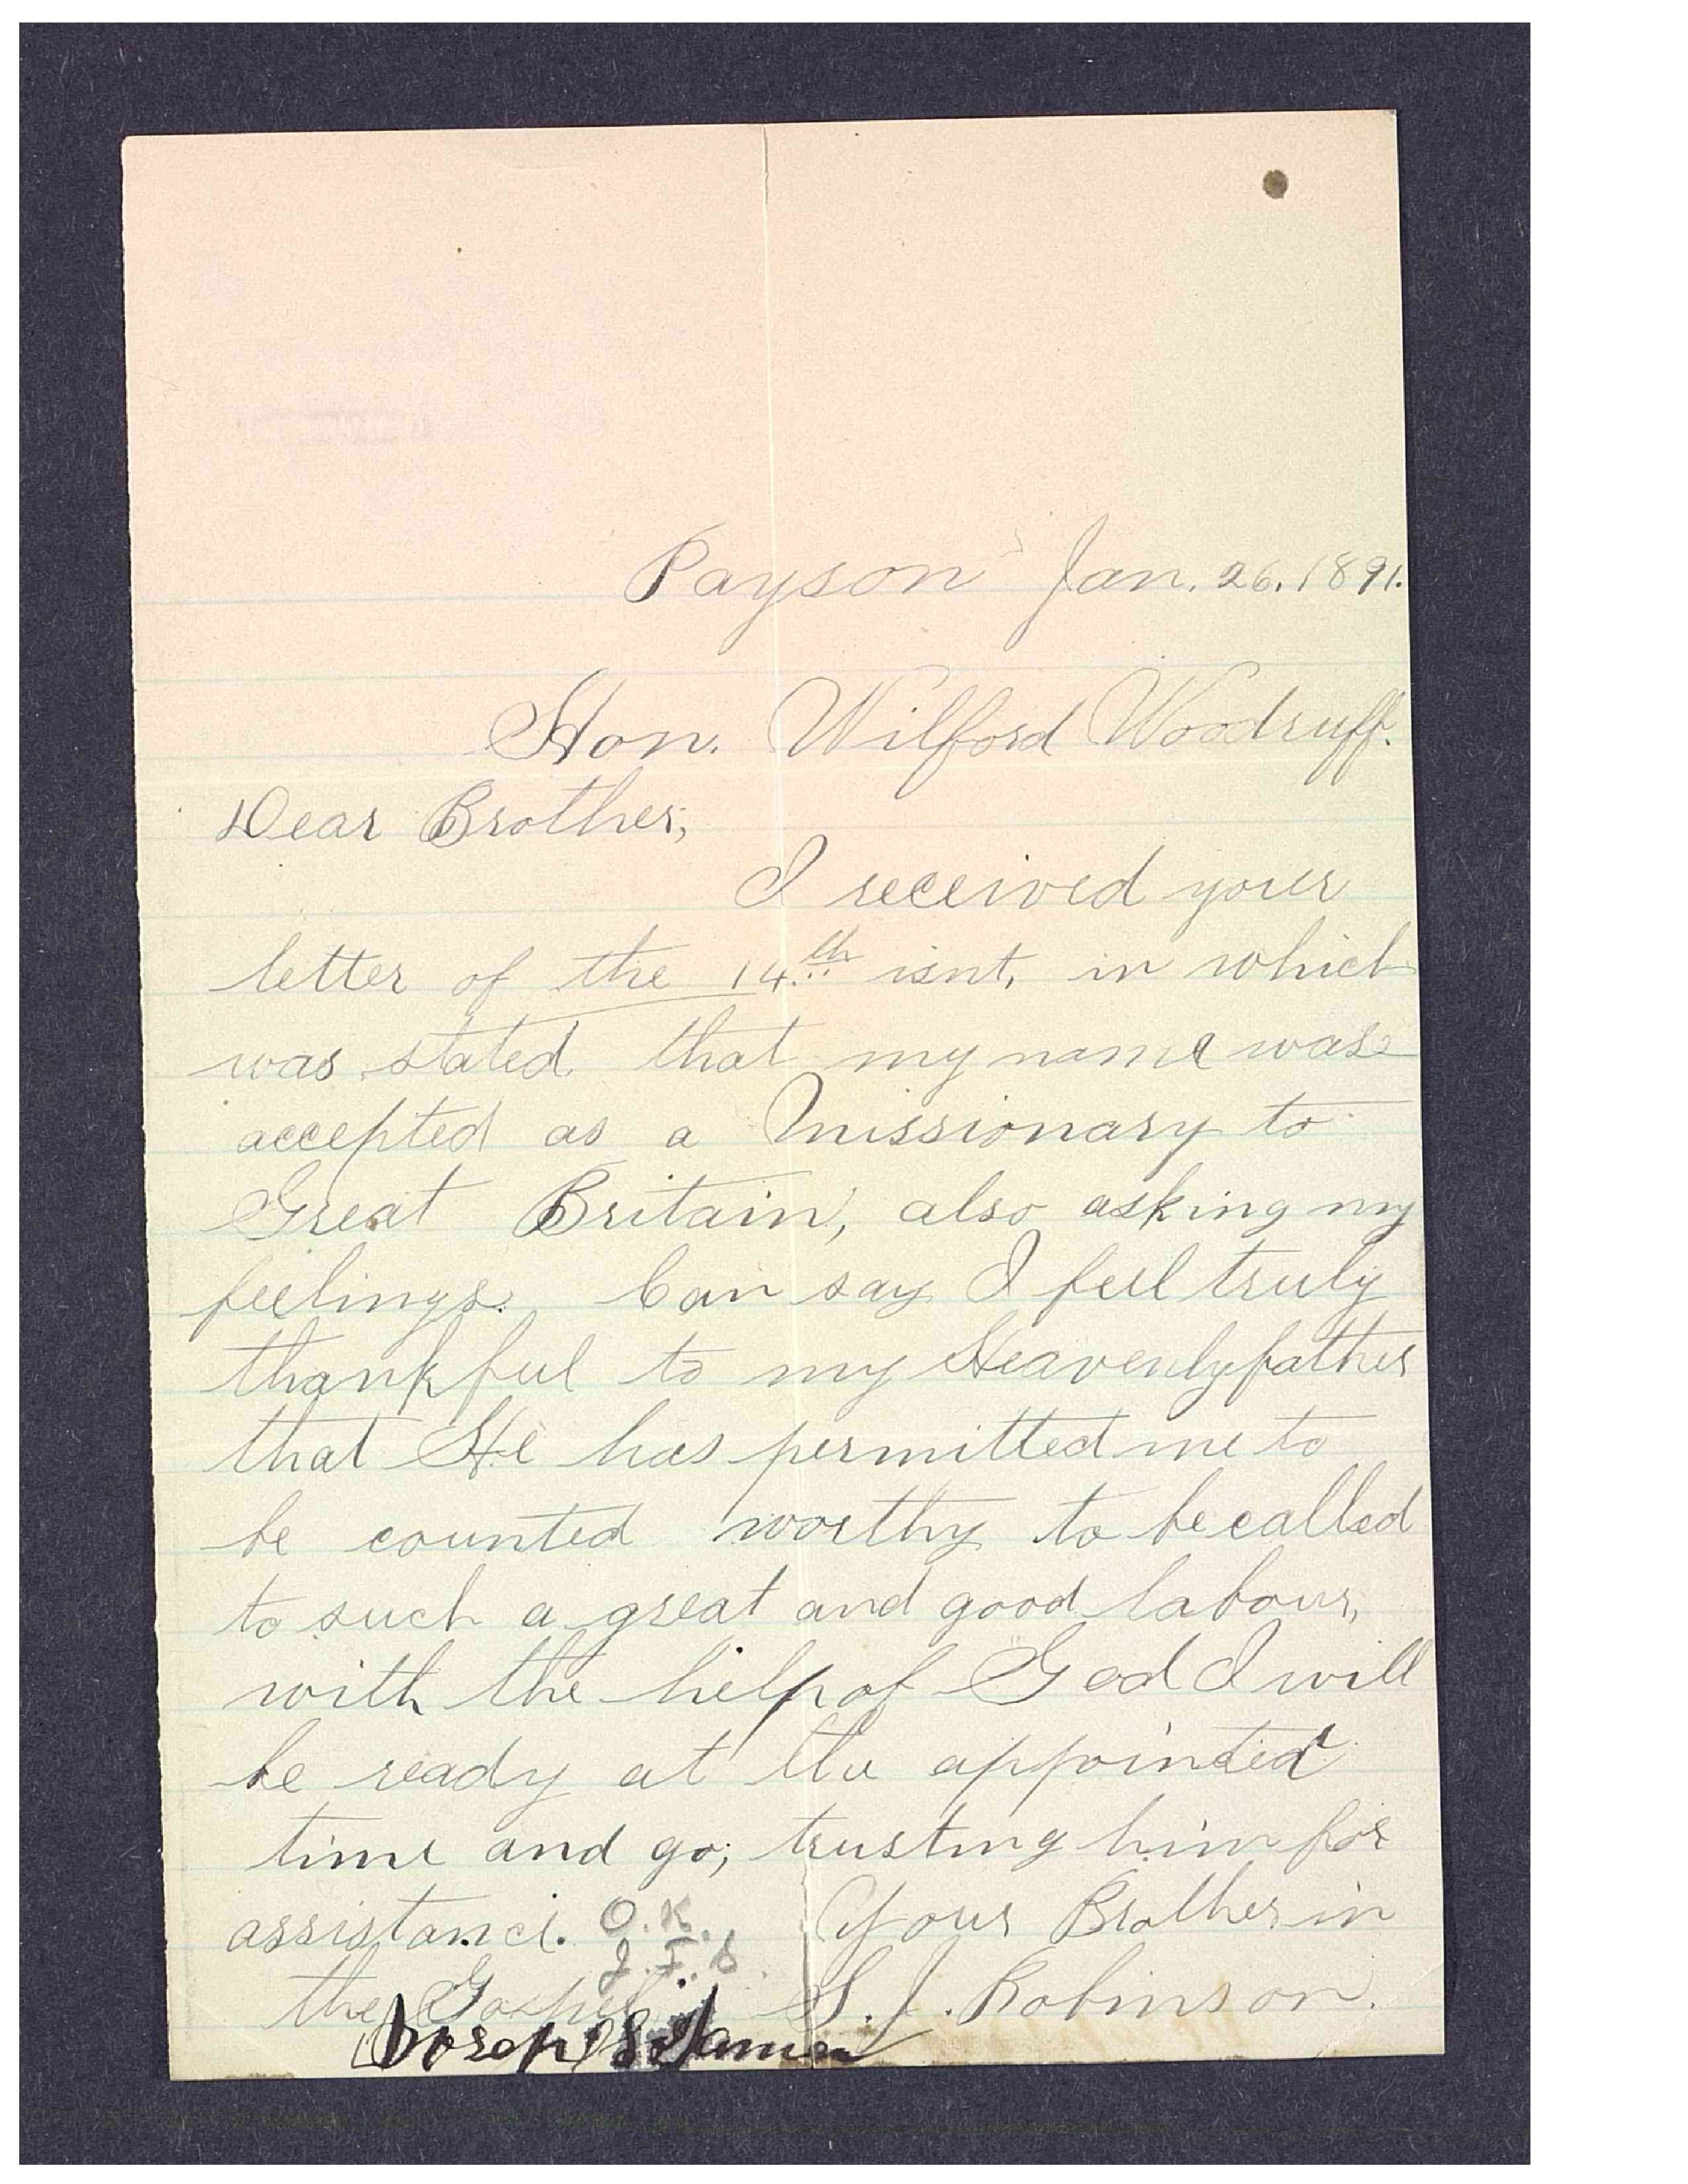 Payson Jan. 26. 1891.
Hon. Wilford Woodruff.
Dear Brother;
I received your
letter of the 14.th isnt, in which
was stated that my name was
accepted as a Missionary to
Great Britain, also asking my
feelings. Can say I feel truly
thankful to my Heavenly father
that He has permitted me to
be counted worthy to be called
to such a great and good labour,
with the help of God I will
be ready at the appointed
time and go; trusting him for
assistance. Your Brother in
the Gospel. S. J. Robinson.
O.K.
J.F.S.
Joseph S.